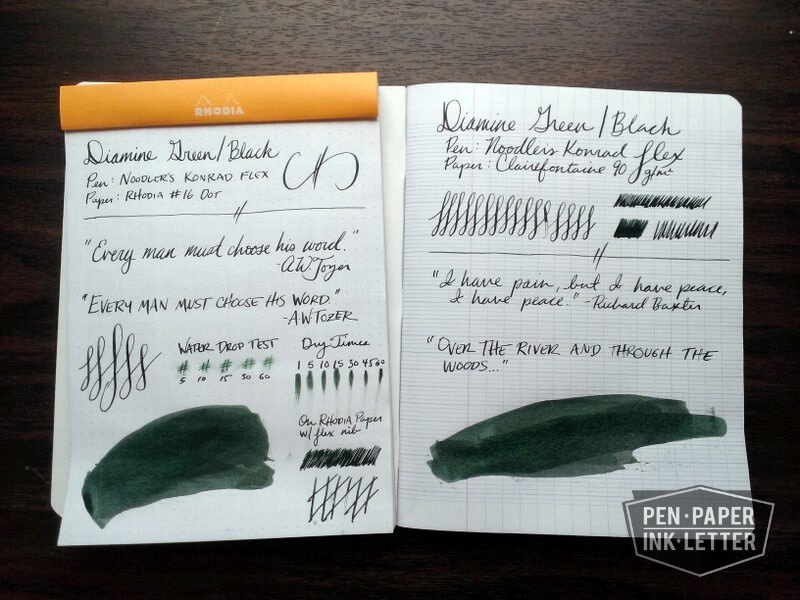 RHODIA
Diamine Green/Black
Pen: Noodler's Konrad Flex
Paper: Rhodia #16 Dot
"Every man must choose his word."
-A.W. Tozer
"Every man must choose his word"
-A.W Tozer
Water Drop Test
# # # # #
5 10 15 30 60
Dry Times
1 5 10 15 30 45 60
On Rhodia Paper
w/ flex nib
Diamine Green/Black
Pen: Noodler's Konrad flex
Paper: Clairefontaine 90 g/m²
"I have pain, but I have peace,
I have peace." -Richard Baxter
"Over the river and through the
woods..."
PEN·PAPER
INK·LETTER